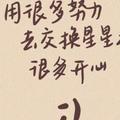 用很多努力
去交换星星
很多开心